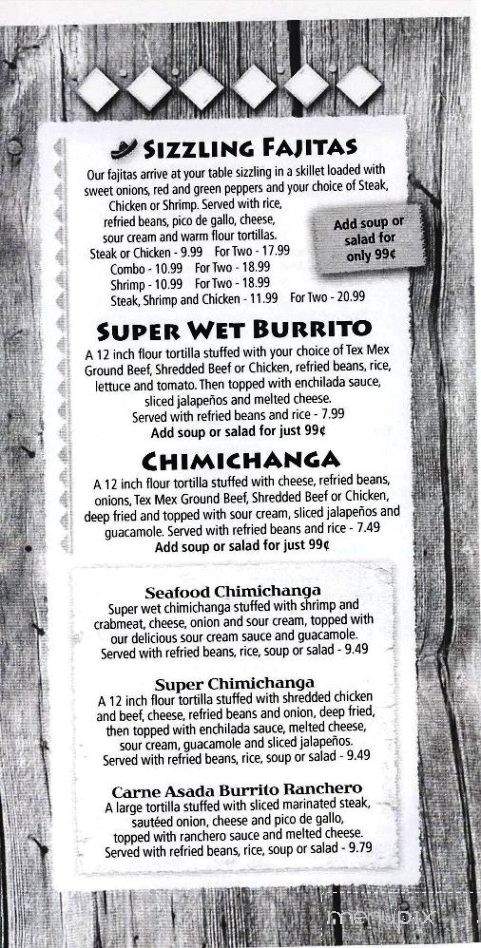 SIZZLING FAJITAS
Our fajitas arrive at your table sizzling in a skillet loaded with
sweet onions, red and green peppers and your choice of Steak,
Chicken or Shrimp. Served with rice,
refried beans, pico de gallo, cheese,
sour cream and warm flour tortillas.
Steak or Chicken - 9.99 For Two - 17.99
Combo - 10.99 For Two - 18.99
Shrimp - 10.99 For Two - 18.99
Steak, Shrimp and Chicken - 11.99 For Two - 20.99
Add soup or
salad for
only 99¢
SUPER WET BURRITO
A 12 inch flour tortilla stuffed with your choice of Tex Mex
Ground Beef, Shredded Beef or Chicken, refried beans, rice,
lettuce and tomato. Then topped with enchilada sauce,
sliced jalapeños and melted cheese.
Served with refried beans and rice - 7.99
Add soup or salad for just 99¢
CHIMICHANGA
A 12 inch flour tortilla stuffed with cheese, refried beans,
onions, Tex Mex Ground Beef, Shredded Beef or Chicken,
deep fried and topped with sour cream, sliced jalapeños and
guacamole. Served with refried beans and rice - 7.49
Add soup or salad for just 99¢
Seafood Chimichanga
Super wet chimichanga stuffed with shrimp and
crabmeat, cheese, onion and sour cream, topped with
our delicious sour cream sauce and guacamole.
Served with refried beans, rice, soup or salad - 9.49
Super Chimichanga
A 12 inch flour tortilla stuffed with shredded chicken
and beef, cheese, refried beans and onion, deep fried,
then topped with enchilada sauce, melted cheese,
sour cream, guacamole and sliced jalapeños.
Served with refried beans, rice, soup or salad - 9.49
Carne Asada Burrito Ranchero
A large tortilla stuffed with sliced marinated steak,
sautéed onion, cheese and pico de gallo,
topped with ranchero sauce and melted cheese.
Served with refried beans, rice, soup or salad - 9.79
menupix